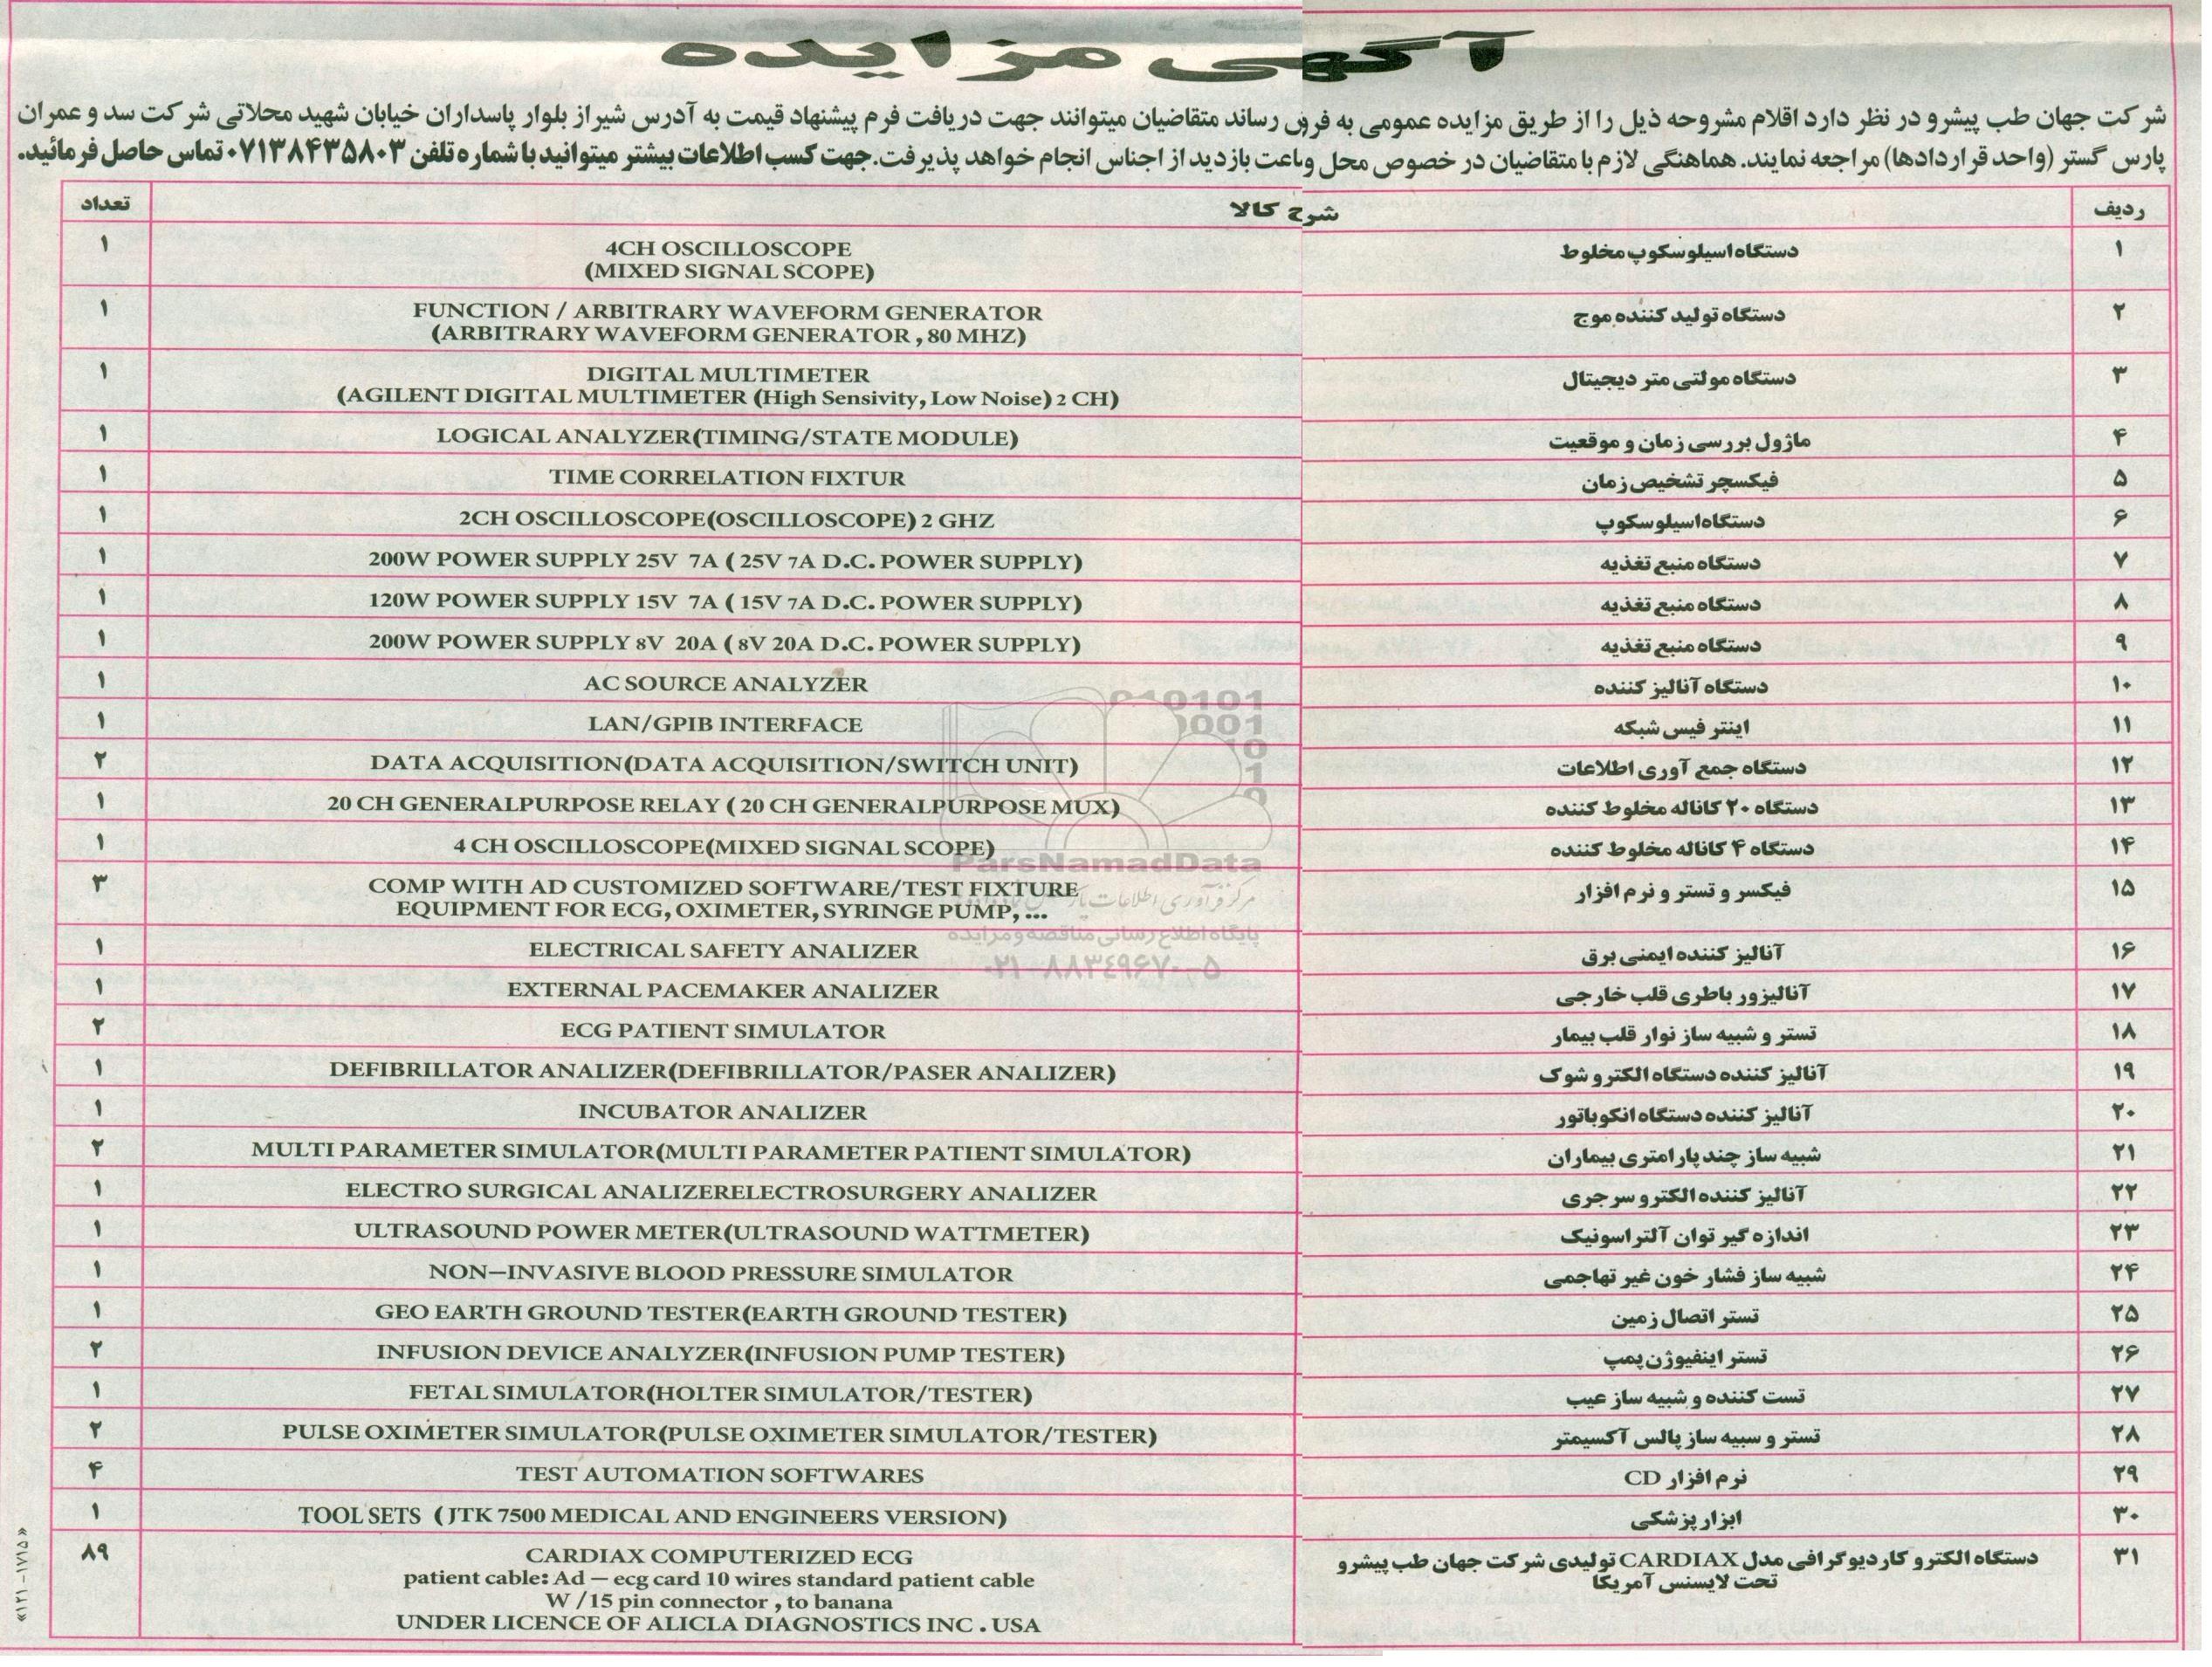 آگهی مزایده
شرکت جهان طب پیشرو در نظر دارد اقلام مشروحه ذیل را از طریق مزایده عمومی به فروش رساند متقاضیان میتوانند جهت دریافت فرم پیشنهاد قیمت به آدرس شیراز بلوار پاسداران خیابان شهید محلاتی شرکت سد و عمران
پارس گستر (واحد قراردادها) مراجعه نمایند. هماهنگی لازم با متقاضیان در خصوص محل و ساعت بازدید از اجناس انجام خواهد پذیرفت. جهت کسب اطلاعات بیشتر میتوانید با شماره تلفن ۰۷۱۳۸۴۳۵۸۰۳ تماس حاصل فرمائید.
ردیف شرح کالا تعداد
۱ دستگاه اسیلوسکوپ مخلوط 4CH OSCILLOSCOPE ۱
(MIXED SIGNAL SCOPE)
۲ دستگاه تولید کننده موج FUNCTION / ARBITRARY WAVEFORM GENERATOR ۱
(ARBITRARY WAVEFORM GENERATOR , 80 MHZ)
۳ دستگاه مولتی متر دیجیتال DIGITAL MULTIMETER ۱
(AGILENT DIGITAL MULTIMETER (High Sensivity, Low Noise) 2 CH)
۴ ماژول بررسی زمان و موقعیت LOGICAL ANALYZER(TIMING/STATE MODULE) ۱
۵ فیکسچر تشخیص زمان TIME CORRELATION FIXTUR ۱
۶ دستگاه اسیلوسکوپ 2CH OSCILLOSCOPE(OSCILLOSCOPE) 2 GHZ ۱
۷ دستگاه منبع تغذیه 200W POWER SUPPLY 25V 7A ( 25V 7A D.C. POWER SUPPLY) ۱
۸ دستگاه منبع تغذیه 120W POWER SUPPLY 15V 7A ( 15V 7A D.C. POWER SUPPLY) ۱
۹ دستگاه منبع تغذیه 200W POWER SUPPLY 8V 20A ( 8V 20A D.C. POWER SUPPLY) ۱
۱۰ دستگاه آنالیز کننده AC SOURCE ANALYZER ۱
۱۱ اینتر فیس شبکه LAN/GPIB INTERFACE ۱
۱۲ دستگاه جمع آوری اطلاعات DATA ACQUISITION(DATA ACQUISITION/SWITCH UNIT) ۲
۱۳ دستگاه ۲۰ کاناله مخلوط کننده 20 CH GENERALPURPOSE RELAY ( 20 CH GENERALPURPOSE MUX) ۱
۱۴ دستگاه ۴ کاناله مخلوط کننده 4 CH OSCILLOSCOPE(MIXED SIGNAL SCOPE) ۱
ParsNamadData
۱۵ فیکسر و تستر و نرم افزار COMP WITH AD CUSTOMIZED SOFTWARE/TEST FIXTURE ۳
EQUIPMENT FOR ECG, OXIMETER, SYRINGE PUMP, ...
پایگاه اطلاع رسانی مناقصه و مزایده
۱۶ آنالیز کننده ایمنی برق ELECTRICAL SAFETY ANALIZER ۱
۰۲۱-۸۸۳۴۹۶۷۰-۵
۱۷ آنالیزور باطری قلب خارجی EXTERNAL PACEMAKER ANALIZER ۱
۱۸ تستر و شبیه ساز نوار قلب بیمار ECG PATIENT SIMULATOR ۲
۱۹ آنالیز کننده دستگاه الکترو شوک DEFIBRILLATOR ANALIZER(DEFIBRILLATOR/PASER ANALIZER) ۱
۲۰ آنالیز کننده دستگاه انکوباتور INCUBATOR ANALIZER ۱
۲۱ شبیه ساز چند پارامتری بیماران MULTI PARAMETER SIMULATOR(MULTI PARAMETER PATIENT SIMULATOR) ۲
۲۲ آنالیز کننده الکترو سرجری ELECTRO SURGICAL ANALIZERELECTROSURGERY ANALIZER ۱
۲۳ اندازه گیر توان آلتراسونیک ULTRASOUND POWER METER(ULTRASOUND WATTMETER) ۱
۲۴ شبیه ساز فشار خون غیر تهاجمی NON—INVASIVE BLOOD PRESSURE SIMULATOR ۱
۲۵ تستر اتصال زمین GEO EARTH GROUND TESTER(EARTH GROUND TESTER) ۱
۲۶ تستر اینفیوژن پمپ INFUSION DEVICE ANALYZER(INFUSION PUMP TESTER) ۲
۲۷ تست کننده و شبیه ساز عیب FETAL SIMULATOR(HOLTER SIMULATOR/TESTER) ۱
۲۸ تستر و سبیه ساز پالس آکسیمتر PULSE OXIMETER SIMULATOR(PULSE OXIMETER SIMULATOR/TESTER) ۲
۲۹ نرم افزار CD TEST AUTOMATION SOFTWARES ۴
۳۰ ابزار پزشکی TOOL SETS ( JTK 7500 MEDICAL AND ENGINEERS VERSION) ۱
۳۱ دستگاه الکترو کاردیوگرافی مدل CARDIAX تولیدی شرکت جهان طب پیشرو CARDIAX COMPUTERIZED ECG ۸۹
تحت لایسنس آمریکا patient cable: Ad — ecg card 10 wires standard patient cable
W /15 pin connector , to banana
UNDER LICENCE OF ALICLA DIAGNOSTICS INC . USA
«۱۲۱-۱۷۱۵»